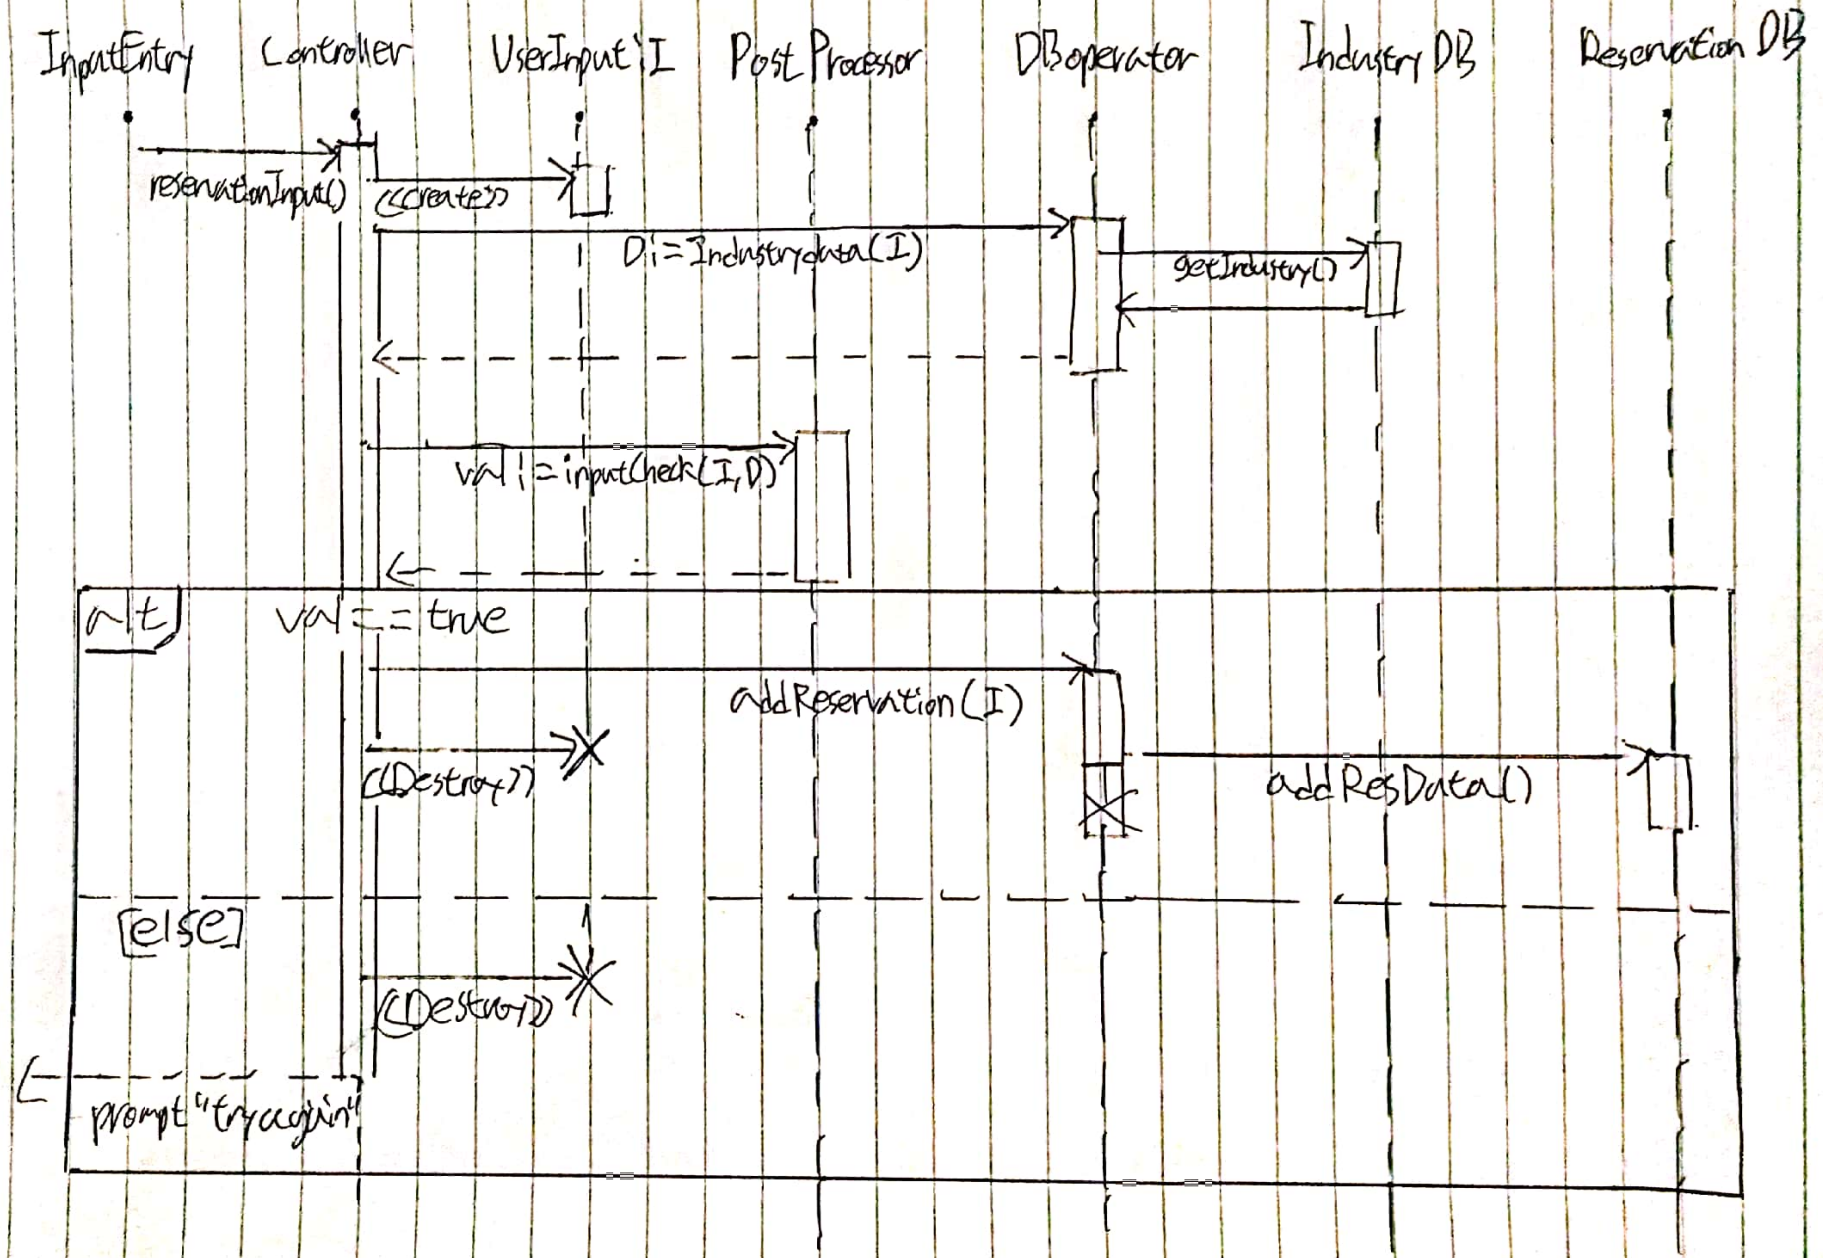 InputEntry
Controller
UserInput:I
Post Processor
DBoperator
Industry DB
Reservation DB
reservationInput()
<<create>>
D:=Industrydata(I)
getIndustry()
val:=inputCheck(I,D)
alt
val==true
addReservation(I)
<<Destroy>>
addResData()
[else]
<<Destroy>>
prompt "try again"